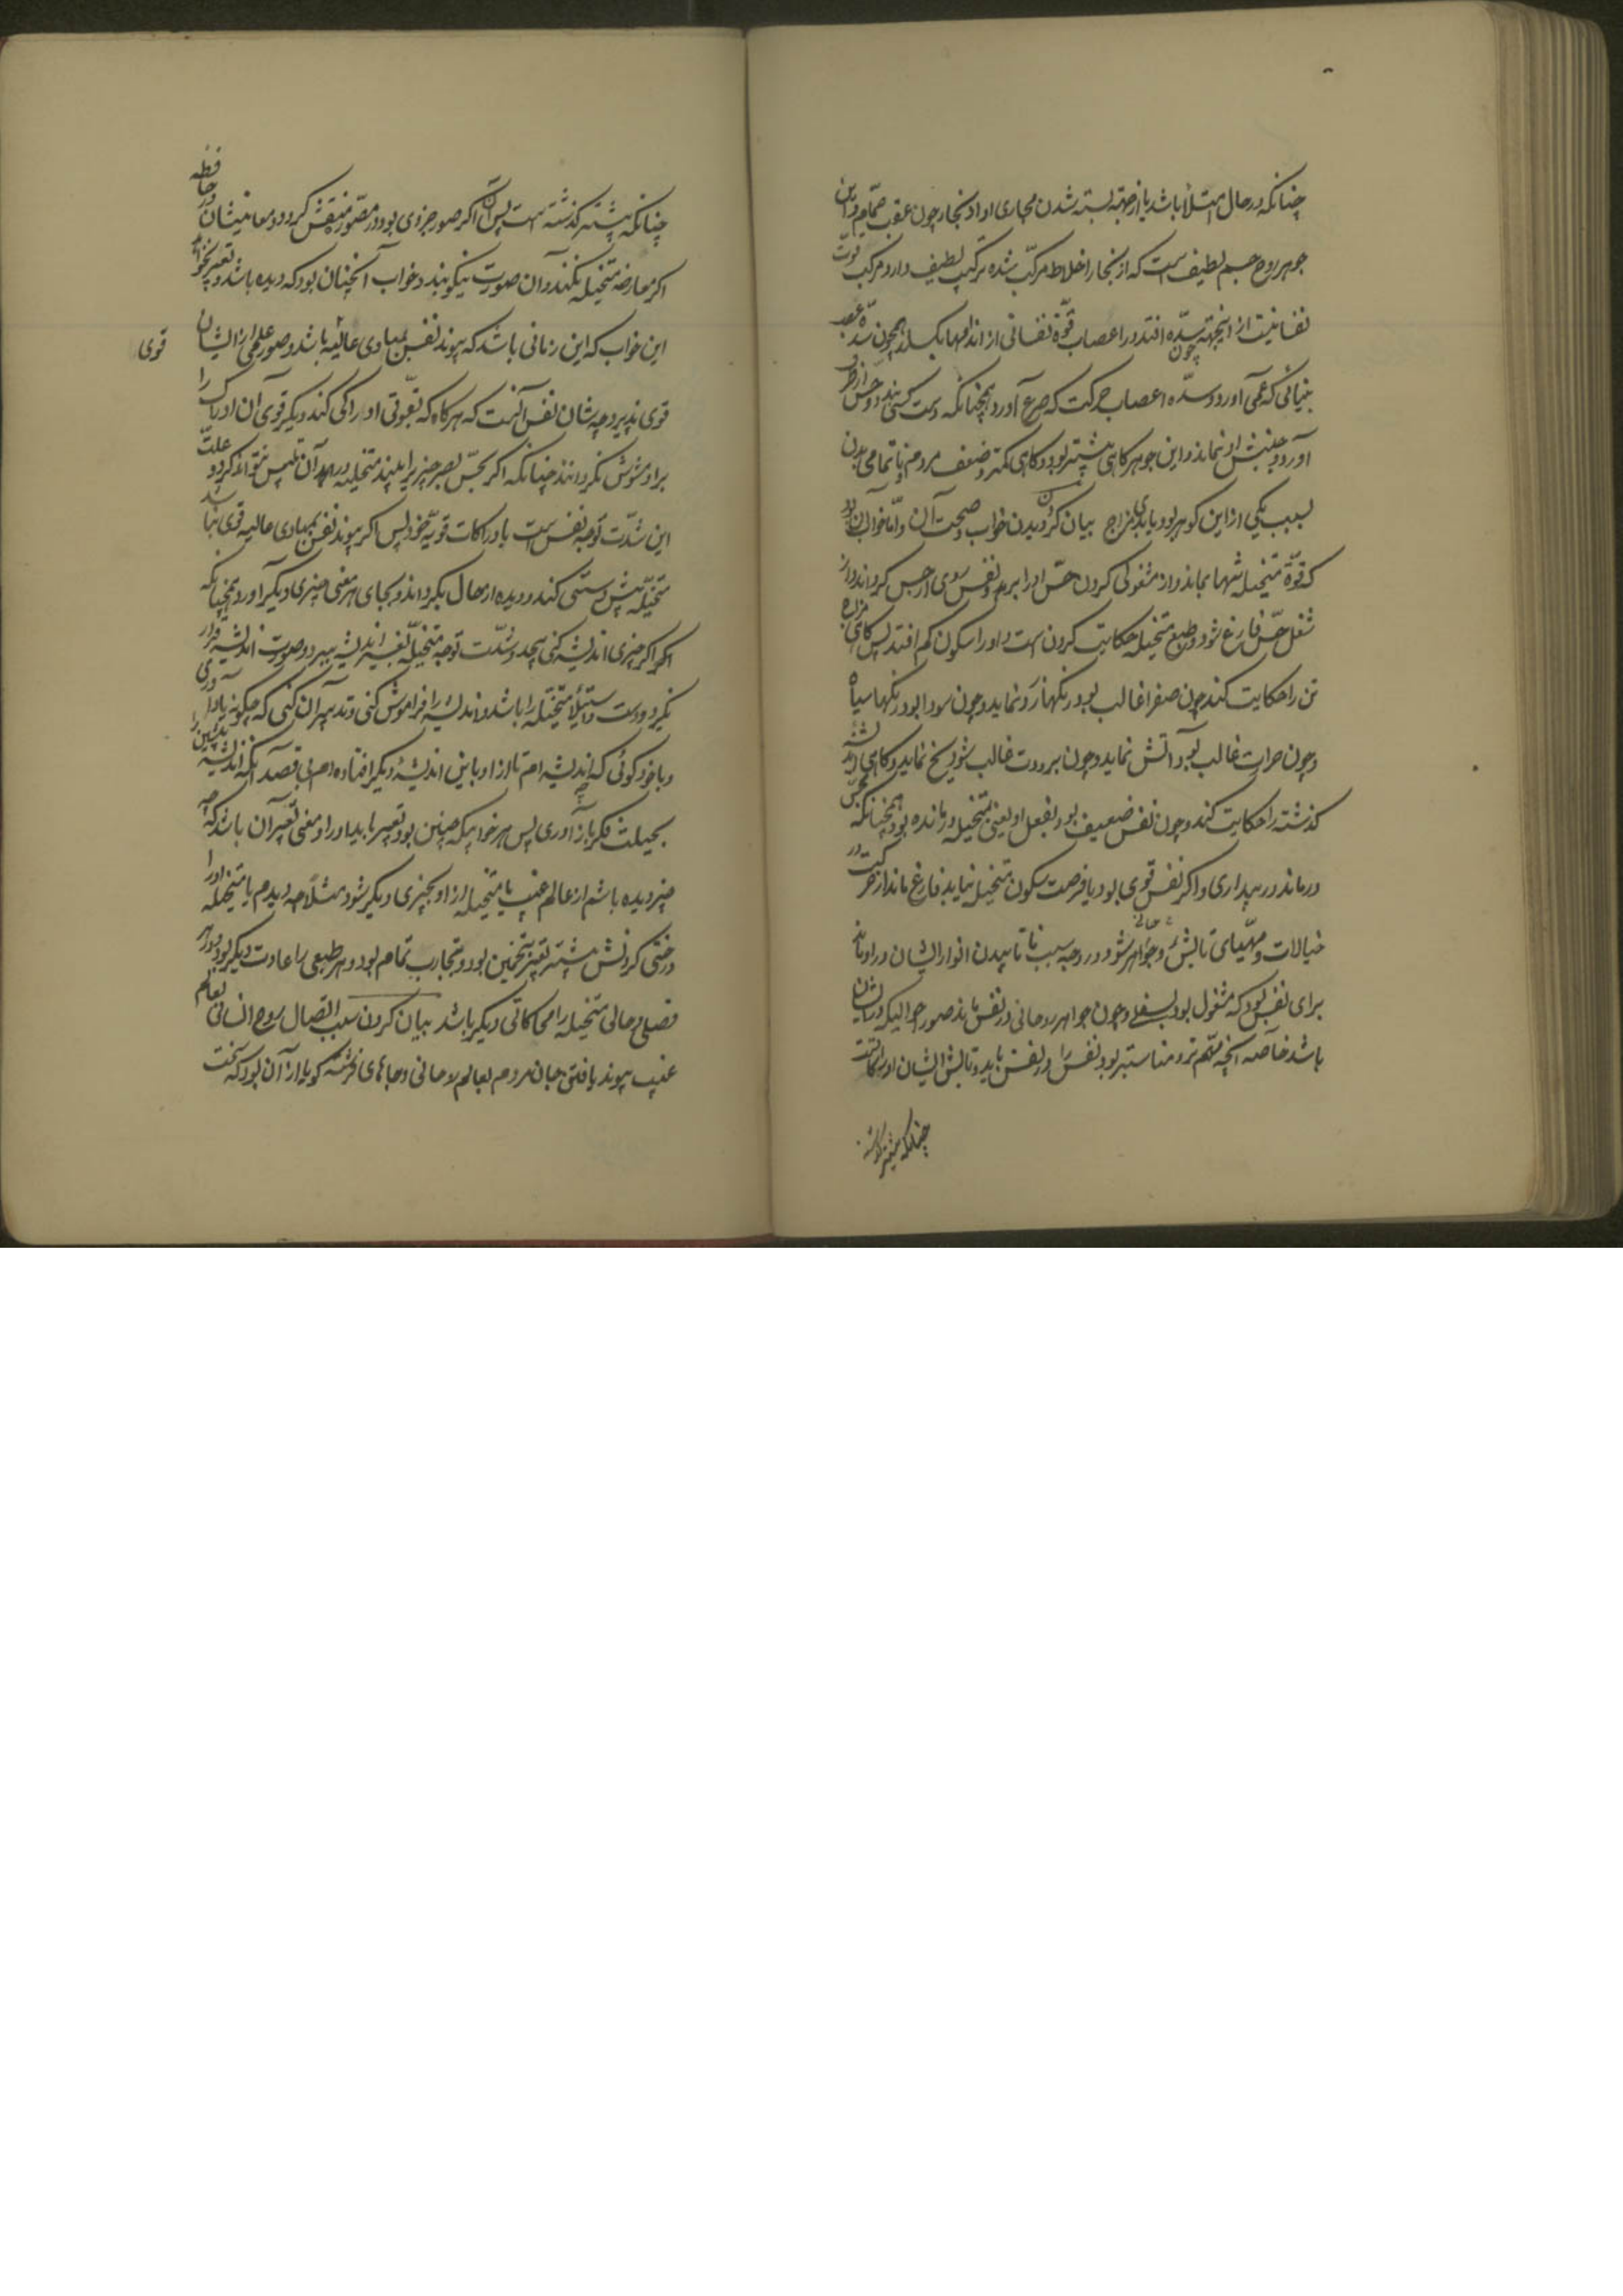 چنانکه در حال امتلا باشد یا از جهة بسته شدن مجاری او از بخار چون عقب حمام و این
جوهر روح جسم لطیف است که از بخار اخلاط مرکب شده ترکیب لطیف دارد و مرکب قوت
نفسانیت از اینجهته چون سده افتد در اعصاب قوة نفسانی از اندامها بکسلد همچون سده عصب
بینائی که عمی آورد و سده اعصاب حرکت که صرع آورد و همچنانکه دست کسی بندد و حس از طرف
آورد و جنبش او نماند و این جوهر کاهی بیشتر بود و کاهی کمتر و ضعف مردم و تمامی بدن
بسبب یکی از این کوهر بود یا بدی مزاج بیان کردن دیدن خواب و صحت آن و اما خواب آن بود
که قوة متخیله تنها بماند و از مشغولی کردن حس او را برهد و نفس روی از حس کرداند و از
شغل حس فارغ شود و طبع متخیله حکایت کردن است و او را سکون کم افتد پس کاهی مزاج
تن را حکایت کند چون صفرا غالب بود رنکها زرد نماید و چون سودا بود رنکها سیاه
و چون حرارت غالب بود آتش نماید و چون برودت غالب شود یخ نماید و کاهی اندیشه
کذشته را حکایت کند و چون نفس ضعیف بود بفعل او یعنی بمتخیله درمانده بود همچنانکه بحس
درماند در بیداری و اکر نفس قوی بود یا فرصت سکون متخیله بیابد فارغ ماند از حرکت در
خیالات و مهیای تابش جواهر روحانی شود در وجه سبب تابیدن انوار ایشان در او ماند
برای نفس بود که مشغول بود بسفلی و چون جواهر روحانی در نفس تابد صور احوالیکه در ایشان
باشد خاصه آنچه مهم تر و مناسبتر بود نفس را در نفس یابد و تابش ایشان او را آنست
چنانکه پیشتر کذشته
چنانکه پیشتر کذشته است پس آن اکر صور جزوی بود در مصور منتقش کردد و معانیشان در حافظه
اکر معارضه متخیله نکند و آن صورت نیکو بیند و خواب آنچنان بود که دیده باشد و تعبیر نخواهد
این خواب که این زمانی باشد که پیوند نفس بمبادی عالیه باشد و صور علمی از ایشان قوی
قوی پذیرد چه شان نفس آنست که هرکاه که بقوتی ادراکی کند دیکر قوی آن ادراک را
بر او مشوش نکردانند چنانکه اکر بحس بصر چیزی را بیند متخیله در آن تلبیس نتواند کرد و علت
این شدت توجه نفس است بادراکات قویه خود پس اکر پیوند نفس بمبادی عالیه قوی نباشد
متخیله پیش دستی کند و دیده از حال بکرداند و بجای هر معنی چیزی دیکر آورد و همچنانکه
اکر اکر چیزی اندیشه کنی بجد و شدت توجه متخیله تغییر اندیشه ببرد و صورت اندیشه قرار
نکیرد و دست و استیلا متخیله را باشد و اندیشه را فراموش کنی و تدبیر آن کنی که چکونه یاد آوری
و با خود کوئی که اندیشه ام تا از او باین اندیشه دیکر افتاده ام بی قصد آنکه اندیشه پیشین را
بحیلت فکر باز آوری پس هر خوابیکه چنین بود تعبیر باید او را و معنی تعبیر آن باشد که چه
چیز دیده باشم از عالم غیب یا متخیله از او بچیزی دیکر شود مثلا چه دیدم یا متخیله او را
درختی کردنش بیشتر تعبیر بتخمین بود و بتجارب تمام بود و هر طبعی را عادت دیکر بود و در هر
فصلی و حالی متخیله را محاکاتی دیکر باشد بیان کردن سبب اتصال روح انسانی بعالم
غیب پیوند یافتن جان مردم بعالم روحانی و جاهای فرشته کویا از آن بود که نخست